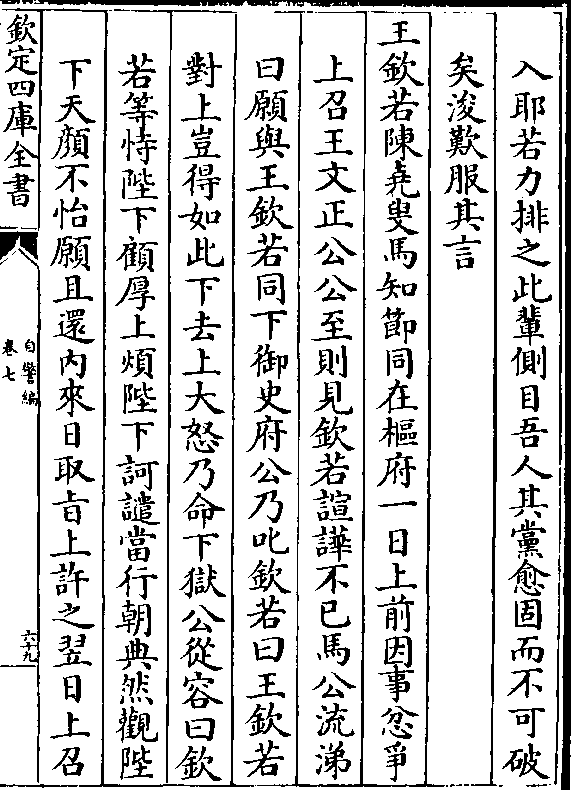 入耶若力排之此輩側目吾人其黨愈固而不可破
矣浚歎服其言
王欽若陳堯叟馬知節同在樞府一日上前因事忿爭
上召王文正公公至則見欽若諠譁不已馬公流涕
曰願與王欽若同下御史府公乃叱欽若曰王欽若
對上豈得如此下去上大怒乃命下獄公從容曰欽
若等恃陛下顧厚上煩陛下訶譴當行朝典然觀陛
下天顔不怡願且還内來日取旨上許之翌日上召
欽定四庫全書
自警編
卷七
六十九